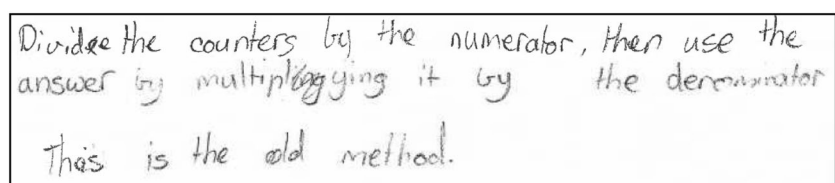 Dividee the counters by the numerator, then use the
answer by multiplingying it by the denominator
This is the old method.